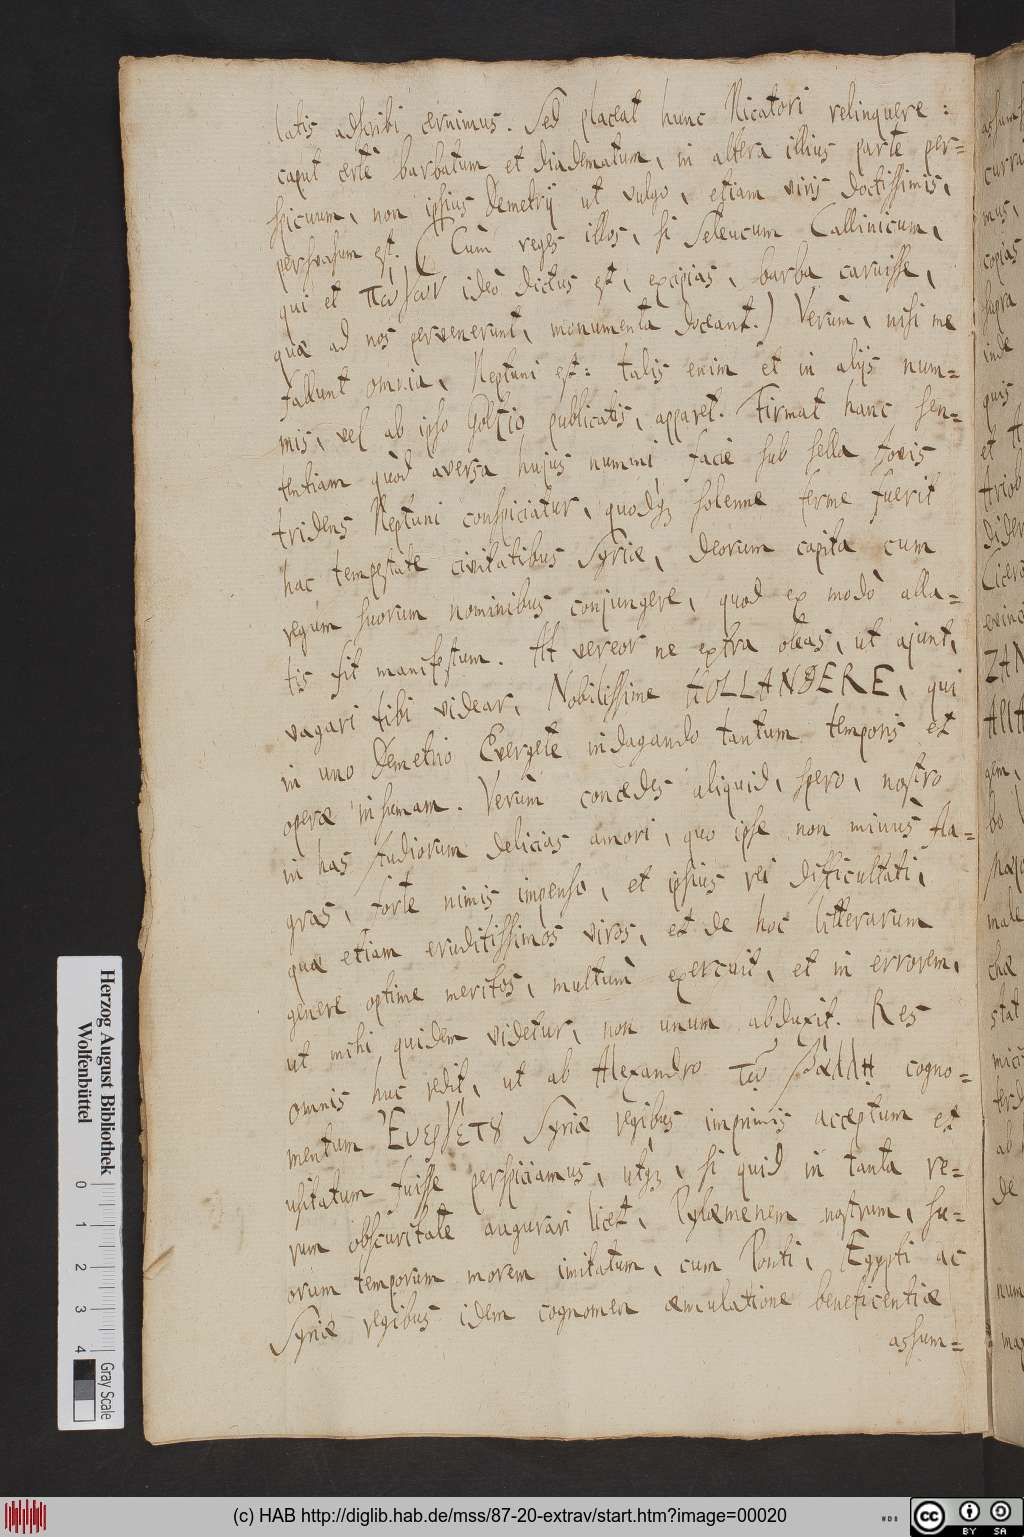 latis adscribi cernimus. Sed placeat hunc Nicatori relinquere:
caput certè barbatum et diadematum, in altera illius parte per=
spicuum, non ipsius Demetrij ut vulgo, etiam viris doctissimis,
persvasum est. (Cum reges illos, si Seleucum Callinicum,
qui et πώγων ideò dictus est, excipias, barba caruisse,
quæ ad nos pervenerunt, monumenta doceant.) Verùm, nisi me
fallunt omnia, Neptuni est: talis enim et in alijs num=
mis, vel ab ipso Goltzio publicatis, apparet. Firmat hanc sen=
tentiam quòd aversa hujus nummi facie sub sella Jovis
tridens Neptuni conspiciatur, quodqȝ solenne ferme fuerit
hac tempestate civitatibus Syriæ, deorum capita cum
regum suorum nominibus conjungere, quod ex modò alla=
tis sit manifestum. At vereor ne extra oleas, ut ajunt,
vagari tibi videar, Nobilissime HOLLANDERE, qui
in uno Demetrio Evergete indagando tantum temporis et
operæ insumam. Verùm concedes aliquid, spero, nostro
in has studiorum delicias amori, quo ipse non minùs fla=
gras, forte nimis impenso, et ipsius rei difficultati,
quæ etiam eruditissimos viros, et de hoc litterarum
genere optime meritos, multum exercuit, et in errorem,
ut mihi quidem videtur, non unum abduxit. Res
omnis huc redit, ut ab Alexandro τῷ βάλλῃ cogno=
mentum Ἐυεργέτȣ Syriæ regibus imprimis acceptum et
usitatum fuisse perspiciamus, utqȝ, si quid in tanta re=
rum obscuritate augurari licet, Pylæmenem nostrum, su=
orum temporum morem imitatum, cum Ponti, Egypti ac
Syriæ regibus idem cognomen æmulatione beneficentiæ
assum=
assum
currai
mus,
copias
supra
inde
quis
et
triob
dider
Cicero
evinc
ZAN
gem,
bo
male
chæ
stat
mici
terd
ab
de
num
Herzog August Bibliothek
Wolfenbüttel
0 1 2 3 4
Gray Scale
(c) HAB http://diglib.hab.de/mss/87-20-extrav/start.htm?image=00020
cc BY SA